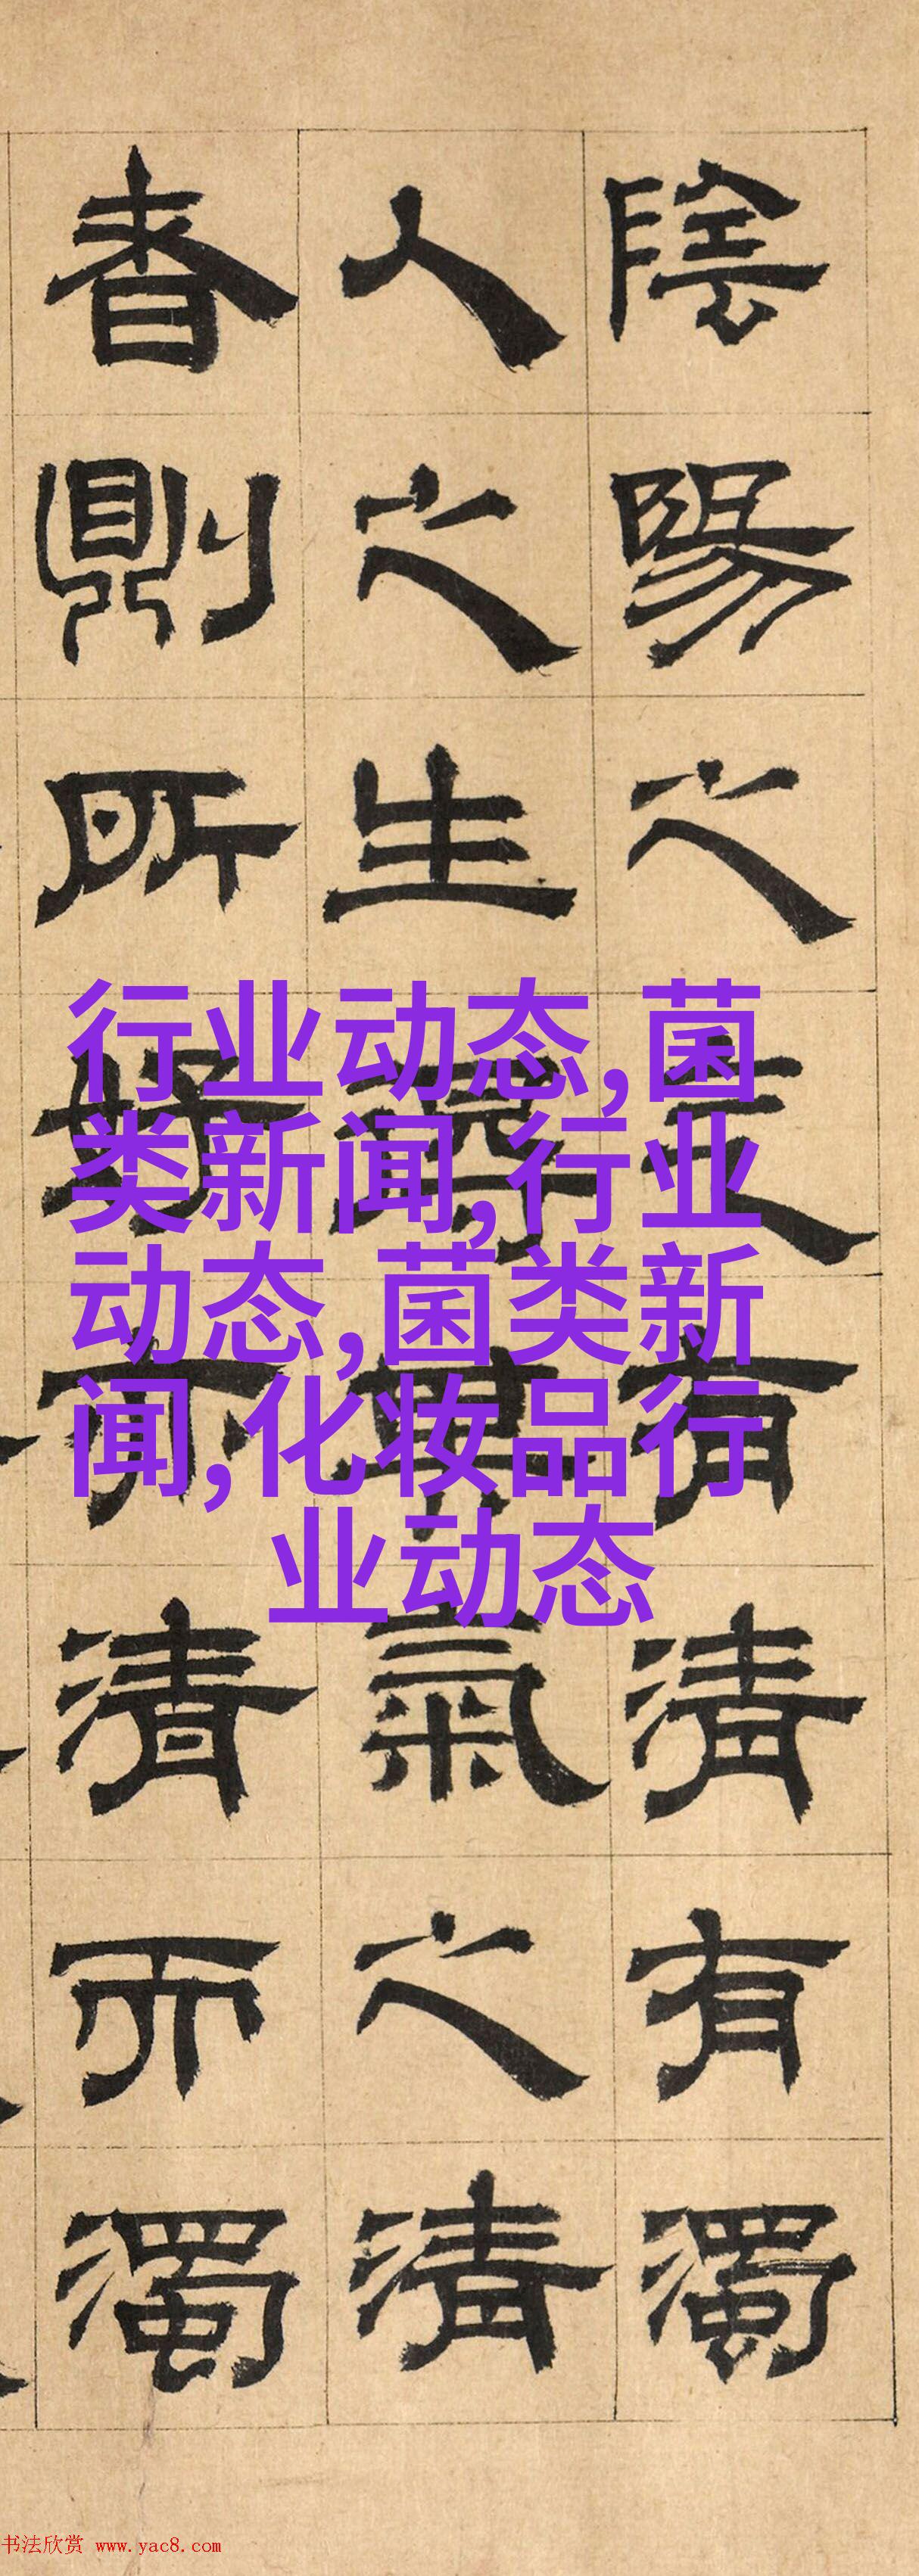 陰陽之有清有濁
人之生氣之清
者則所好亦清而濁
行业动态,菌
类新闻,行业
动态,菌类新
闻,化妆品行
业动态
书法欣赏 www.yac8.com